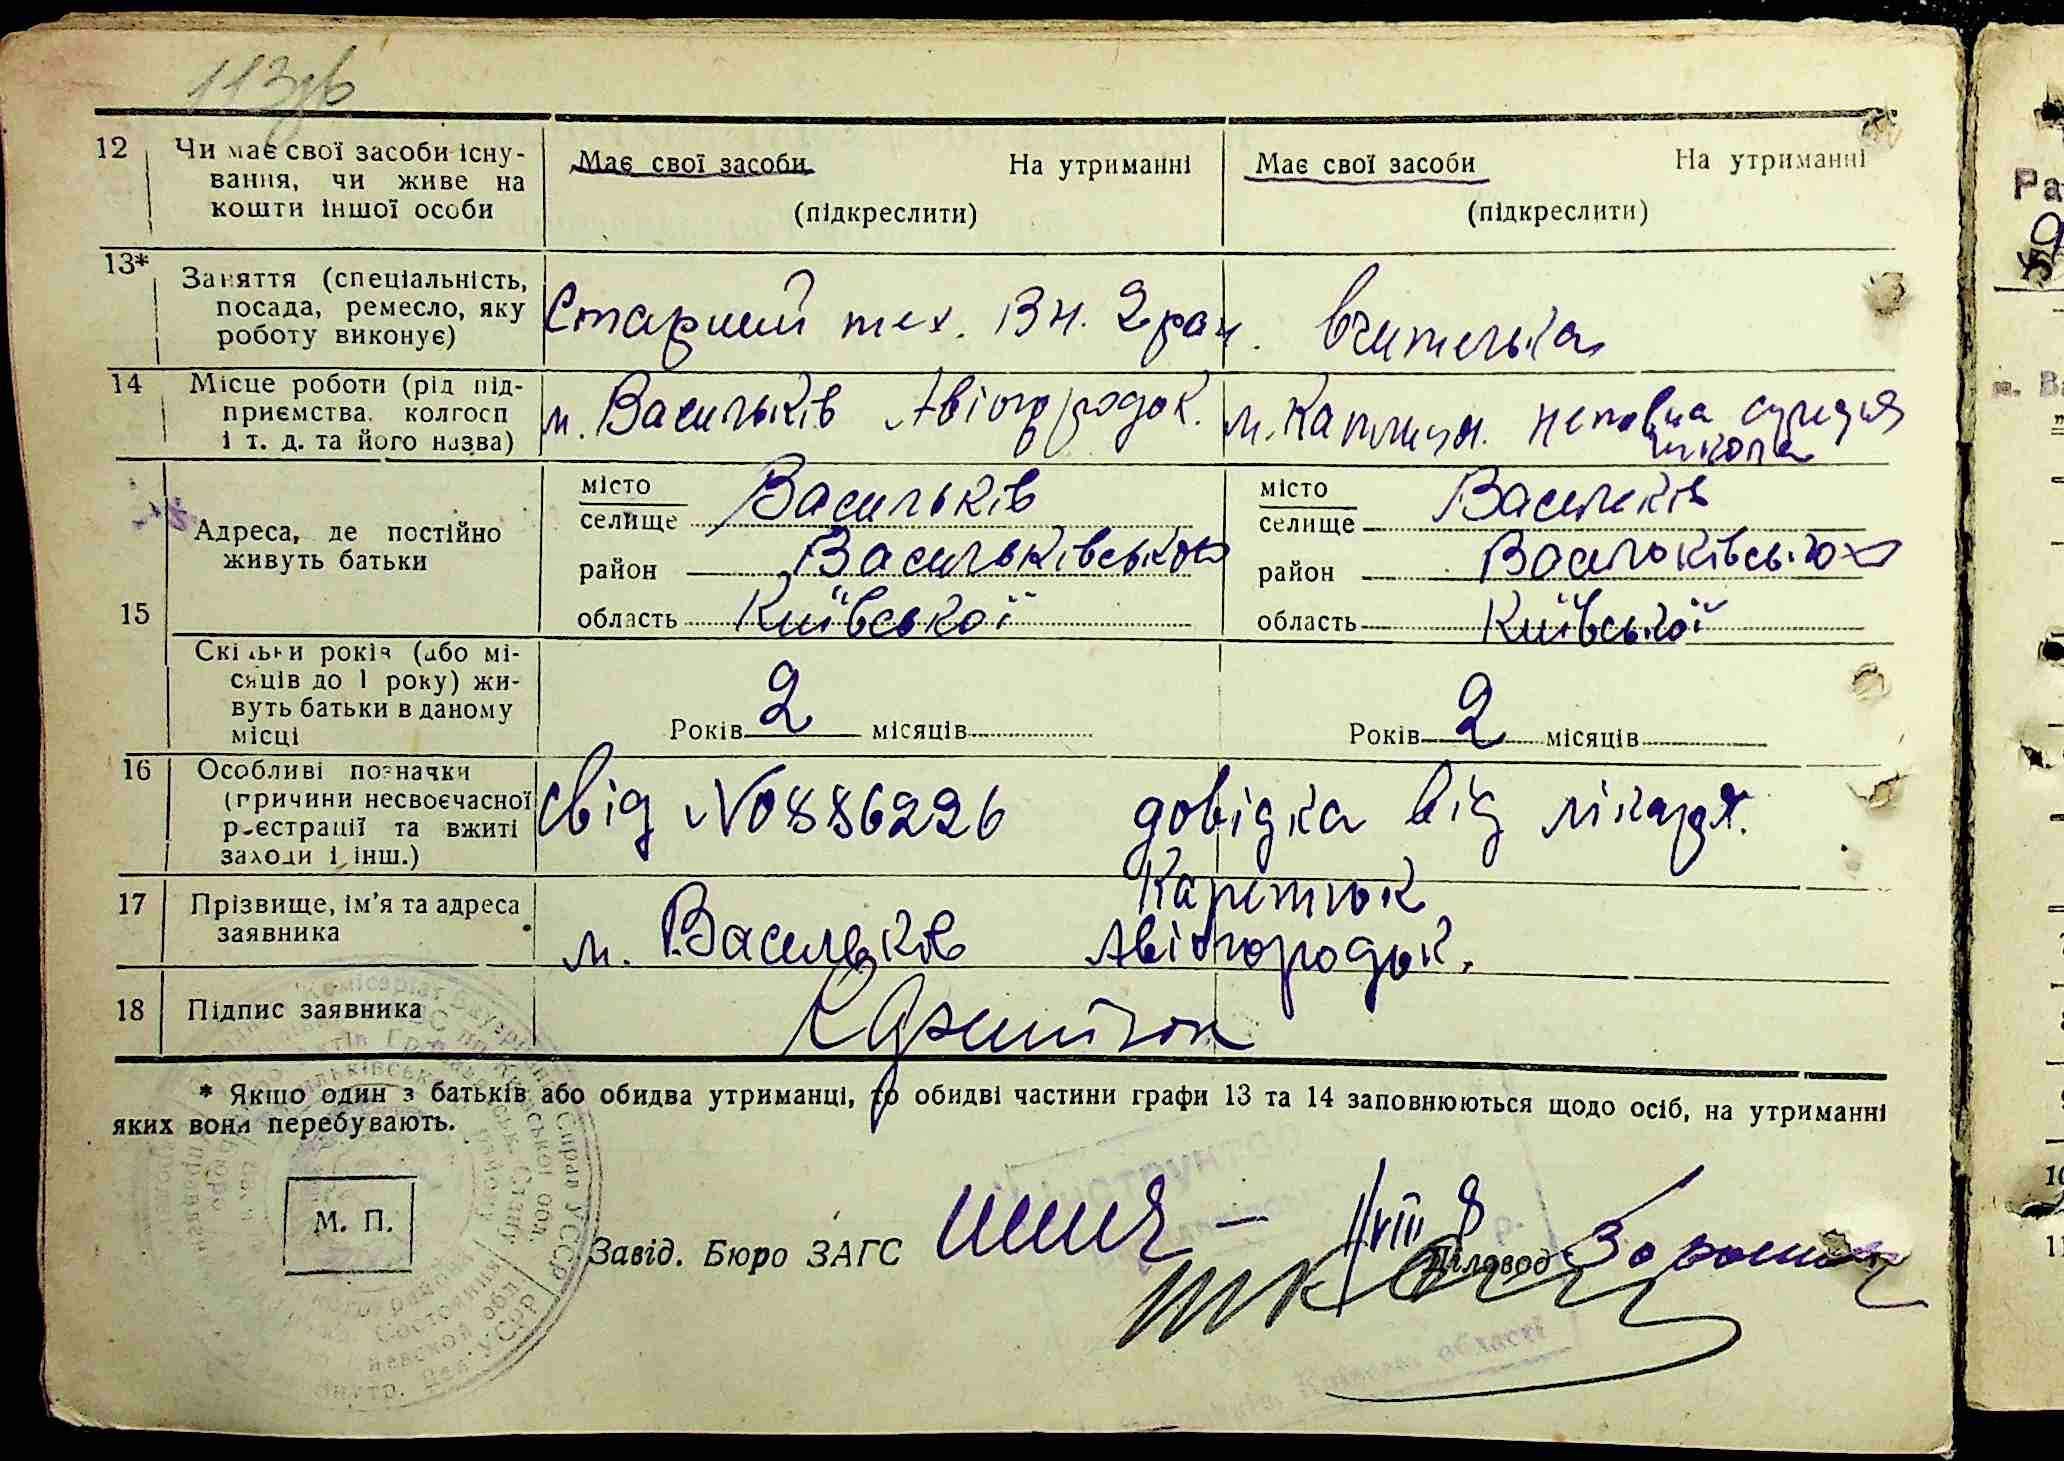 113зв
12 Чи має свої засоби існу-
вання, чи живе на
кошти іншої особи
Має свої засоби На утриманні
(підкреслити)
Має свої засоби На утриманні
(підкреслити)
13* Заняття (спеціальність,
посада, ремесло, яку
роботу виконує)
Старший тех. Вн. 2 ран.
вчителька
14 Місце роботи (рід під-
приємства, колгосп
і т. д. та його назва)
м. Васильків Авіогородок.
неповна середня
школа
15 Адреса, де постійно
живуть батьки
місто
селище Васильків
район Васильківського
область Київської
місто
селище Васильків
район Васильківського
область Київської
Скільки років (або мі-
сяців до 1 року) жи-
вуть батьки в даному
місці
Років 2 місяців
Років 2 місяців
16 Особливі позначки
(причини несвоєчасної
реєстрації та вжиті
заходи і інш.)
свід №0886226 довідка від лікаря.
17 Прізвище, ім'я та адреса
заявника
м. Васильків Авіогородок.
18 Підпис заявника
* Якщо один з батьків або обидва утриманці, то обидві частини графи 13 та 14 заповнюються щодо осіб, на утриманні
яких вони перебувають.
М. П.
Завід. Бюро ЗАГС
Діловод
VIII
Київської області
Ра
м. Ва